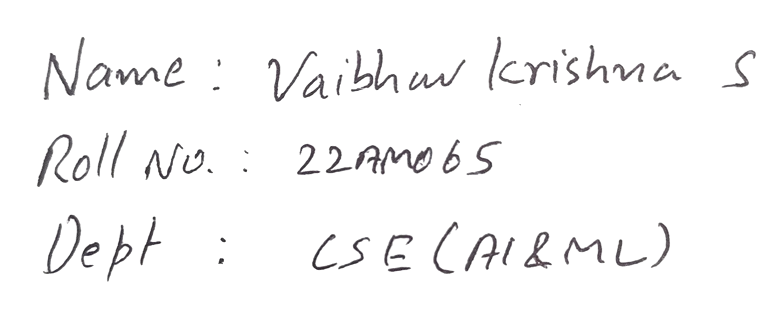 Name : Vaibhav Krishna S
Roll No. : 22AM065
Dept : CSE (AI&ML)